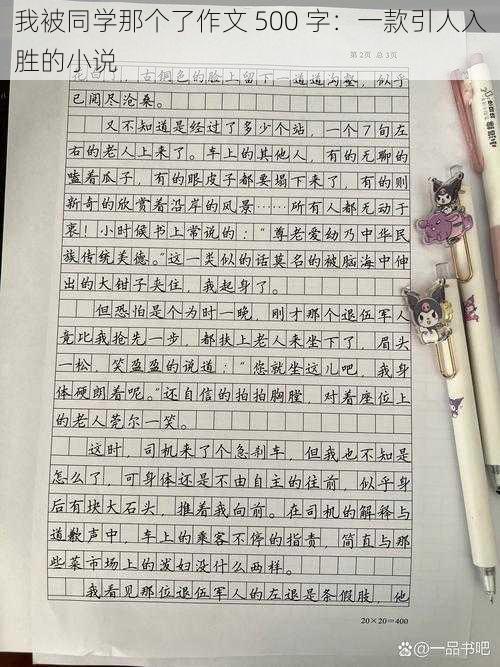 我被同学那个了作文 500 字：一款引人入
胜的小说
第2页 总3页
花白了，古铜色的脸上留下一道道沟壑，似乎
已阅尽沧桑。
又不知道是经过了多少个站，一个7旬左
右的老人上来了。车上的其他人，有的无聊的
嗑着瓜子，有的眼皮子都要塌下来了，有的则
新奇的欣赏着沿岸的风景……所有人都无动于
衷！小时候书上常说的：“尊老爱幼乃中华民
族传统美德。”这一类似的话莫名的被脑海中伸
出的大钳子夹住，我起身了。
但恐怕是个为时一晚，刚才那个退伍军人
竟比我抢先一步，都扶上老人来坐下了，眉头
一松，笑盈盈的说道：“您就坐这儿吧，我身
体硬朗着呢。”还自信的拍拍胸膛，对着座位上
的老人莞尔一笑。
这时，司机来了个急刹车，但我也不知是
怎么了，可身体还是不由自主的往前，似乎身
后有块大石头，推着我向前。在司机的解释与
道歉声中，车上的乘客不停的指责，简直与那
些菜市场上的泼妇没什么两样。
我看见那位退伍军人的左退是条假肢，他
20×20=400
一品书吧